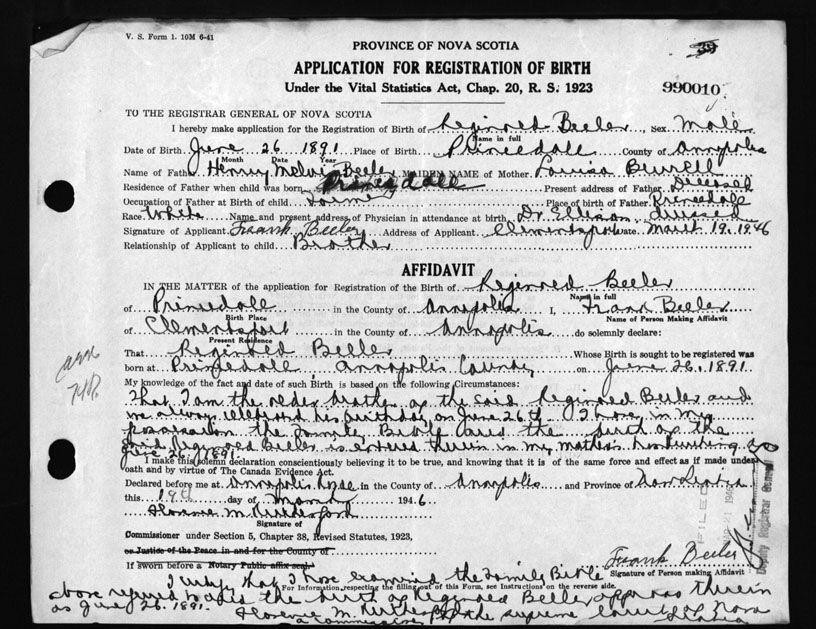 V. S. Form 1. 10M 6-41
PROVINCE OF NOVA SCOTIA
APPLICATION FOR REGISTRATION OF BIRTH
Under the Vital Statistics Act, Chap. 20, R. S. 1923
990010
TO THE REGISTRAR GENERAL OF NOVA SCOTIA
I hereby make application for the Registration of Birth of Reginred Beeler Sex Male
Name in full
Date of Birth June 26 1891 Place of Birth Princedale County of Annapolis
Month Date Year
Name of Father Henry Melvin Beeler MAIDEN NAME of Mother Louisa Burrell
Residence of Father when child was born Princedale Present address of Father Deceased
Occupation of Father at Birth of child Place of birth of Father Princedale
Race White Name and present address of Physician in attendance at birth Dr. Ellison deceased
Signature of Applicant Frank Beeler Address of Applicant Clementsport Date March 19, 1946
Relationship of Applicant to child Brother
AFFIDAVIT
IN THE MATTER of the application for Registration of the Birth of Reginred Beeler
Name in full
of Princedale in the County of Annapolis I, Frank Beeler
Birth Place Name of Person Making Affidavit
of Clementsport in the County of Annapolis do solemnly declare:
Present Residence
That Reginred Beeler Whose Birth is sought to be registered was
born at Princedale, Annapolis County on June 26, 1891.
My knowledge of the fact and date of such Birth is based on the following Circumstances:
That I am the older brother of the said Reginred Beeler and
we always celebrated his birthday on June 26th. I have in my
possession the Family Bible and the birth of the
said Reginred Beeler is entered therein in my mother's handwriting as
June 26, 1891.
I make this solemn declaration conscientiously believing it to be true, and knowing that it is of the same force and effect as if made under
oath and by virtue of The Canada Evidence Act.
Declared before me at Annapolis Royal in the County of Annapolis and Province of Nova Scotia
this 19th day of March 1946
Florence M. Rutherford
Signature of
Commissioner under Section 5, Chapter 38, Revised Statutes, 1923,
or Justice of the Peace in and for the County of
If sworn before a Notary Public affix seal.
Frank Beeler
Signature of Person making Affidavit
FILED
Deputy Registrar General
I certify that I have examined the Family Bible
For Information respecting the filling out of this Form, see Instructions on the reverse side.
above referred to and the birth of Reginred Beeler appears therein
as June 26, 1891.
Florence M. Rutherford
a Commissioner of the Supreme Court of Nova
Scotia